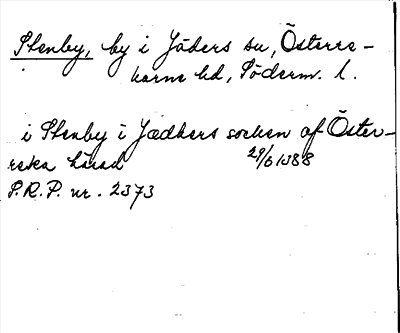 Stenby, by i Jäders sn, Österre-
karne hd, Söderm. l.
i Stenby i Jædhers socken af Öster-
reka härad 29/6 1388
S.R.P. nr. 2373